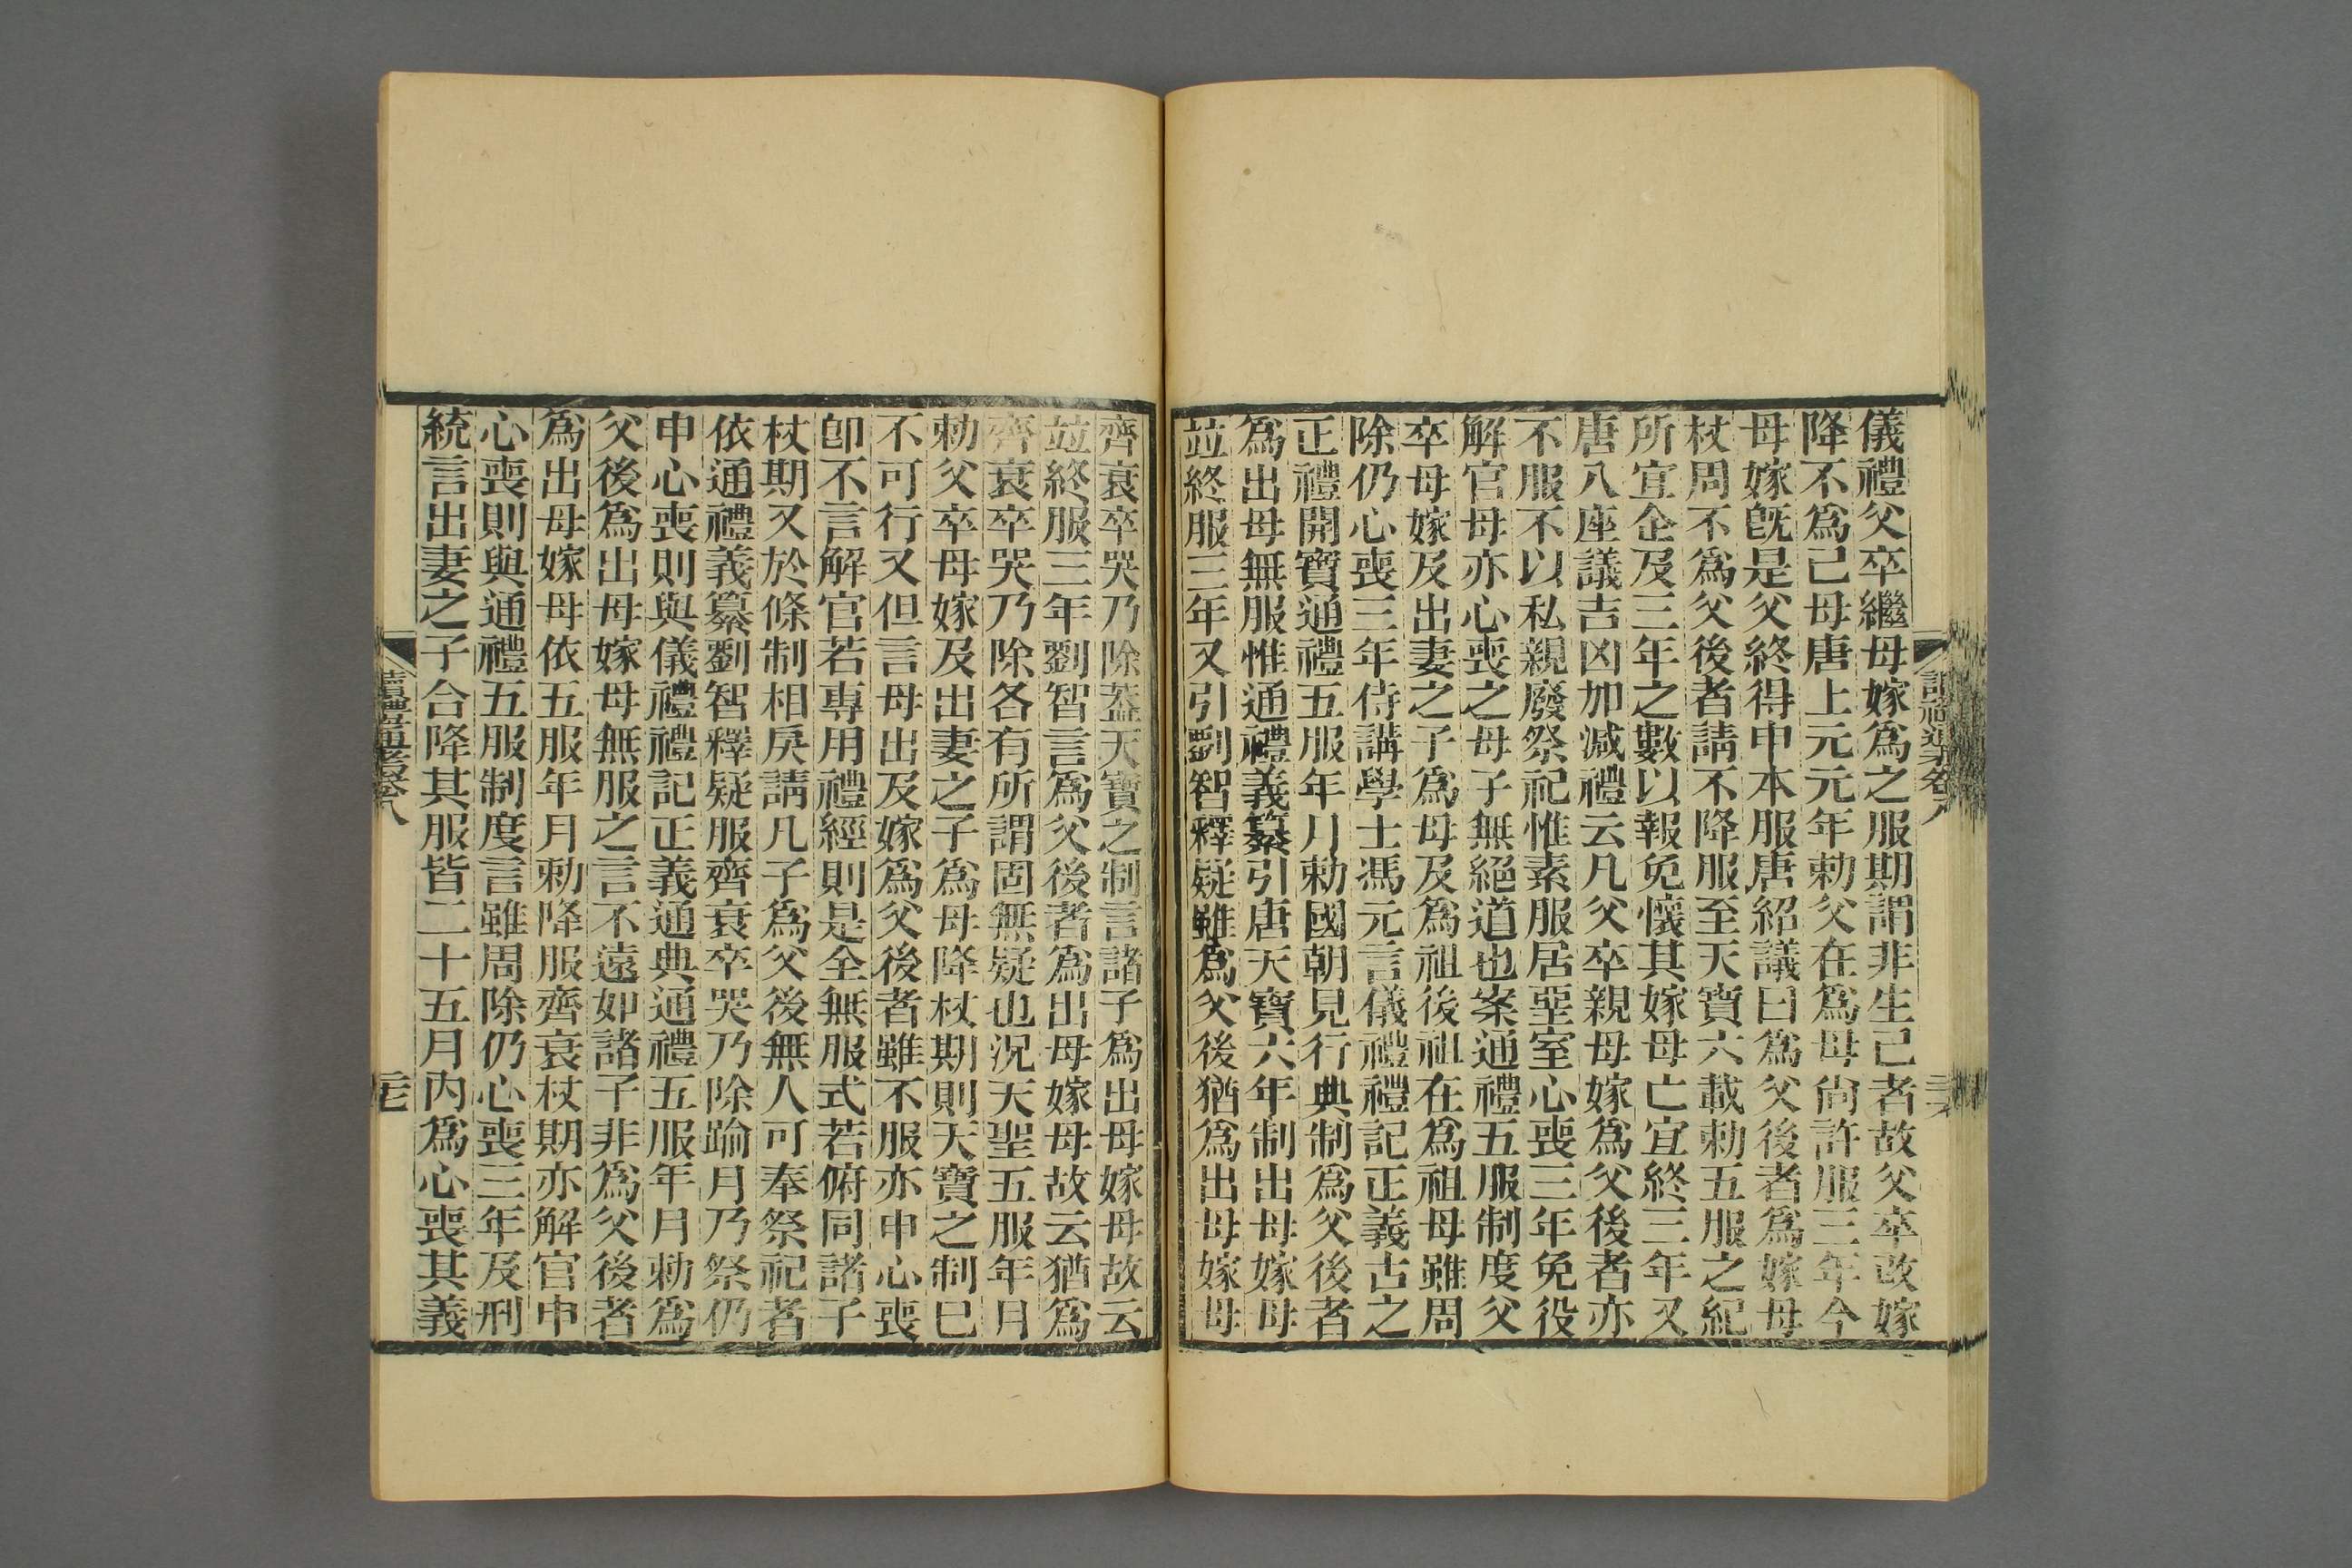 儀禮父卒繼母嫁爲之服期謂非生己者故父卒改嫁
降不爲己母唐上元元年勅父在爲母尙許服三年今
母嫁旣是父終得申本服唐紹議曰爲父後者爲嫁母
杖周不爲父後者請不降服至天寶六載勅五服之紀
所宜企及三年之數以報免懷其嫁母亡宜終三年又
唐八座議吉凶加減禮云凡父卒親母嫁爲父後者亦
不服不以私親廢祭祀惟素服居堊室心喪三年免役
解官母亦心喪之母子無絕道也案通禮五服制度父
卒母嫁及出妻之子爲母及爲祖後祖在爲祖母雖周
除仍心喪三年侍講學士馮元言儀禮禮記正義古之
正禮開寶通禮五服年月勅國朝見行典制爲父後者
爲出母無服惟通禮義纂引唐天寶六年制出母嫁母
竝終服三年又引劉智釋疑雖爲父後猶爲出母嫁母
齊衰卒哭乃除蓋天寶之制言諸子爲出母嫁母故云
竝終服三年劉智言爲父後者爲出母嫁母故云猶爲
齊衰卒哭乃除各有所謂固無疑也況天聖五服年月
勅父卒母嫁及出妻之子爲母降杖期則天寶之制已
不可行又但言母出及嫁爲父後者雖不服亦申心喪
卽不言解官若專用禮經則是全無服式若俯同諸子
杖期又於條制相戾請凡子爲父後無人可奉祭祀者
依通禮義纂劉智釋疑服齊衰卒哭乃除踰月乃祭仍
申心喪則與儀禮禮記正義通典通禮五服年月勅爲
父後爲出母嫁母無服之言不遠如諸子非爲父後者
爲出母嫁母依五服年月勅降服齊衰杖期亦解官申
心喪則與通禮五服制度言雖周除仍心喪三年及刑
統言出妻之子合降其服皆二十五月內爲心喪其義